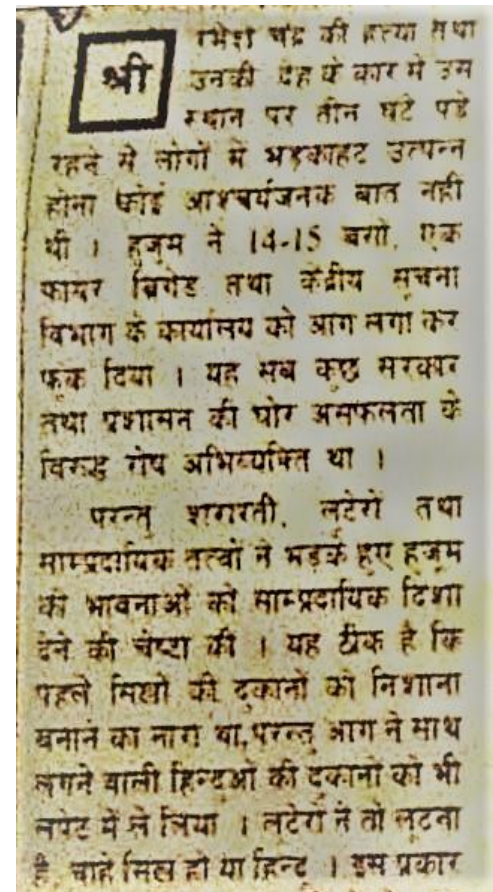 श्री रमेश चंद्र की हत्या तथा
उनकी देह के कार में उस
स्थान पर तीन घंटे पड़े
रहने से लोगों में भड़काहट उत्पन्न
होना कोई आश्चर्यजनक बात नहीं
थी । हजूम ने 14-15 बसों, एक
फायर ब्रिगेड तथा केंद्रीय सूचना
विभाग के कार्यालय को आग लगा कर
फूंक दिया । यह सब कुछ सरकार
तथा प्रशासन की घोर असफलता के
विरुद्ध रोष अभिव्यक्ति था ।
परन्तु शरारती, लुटेरों तथा
साम्प्रदायिक तत्वों ने भड़के हुए हजूम
की भावनाओं को साम्प्रदायिक दिशा
देने की चेष्टा की । यह ठीक है कि
पहले सिखों की दुकानों को निशाना
बनाने का नारा था, परन्तु आग ने साथ
लगने वाली हिन्दुओं की दुकानों को भी
लपेट में ले लिया । लुटेरों ने तो लूटना
है, चाहे सिख हो या हिन्दू । इस प्रकार